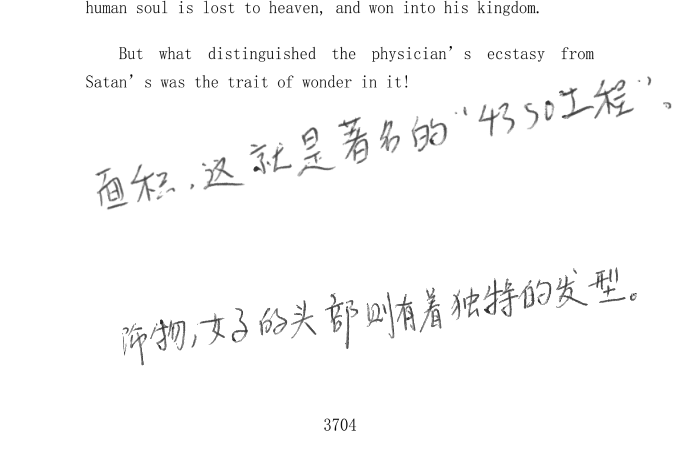 human soul is lost to heaven, and won into his kingdom.
But what distinguished the physician's ecstasy from
Satan's was the trait of wonder in it!
面积,这就是著名的“4350工程”。
饰物,女子的头部则有着独特的发型。
3704